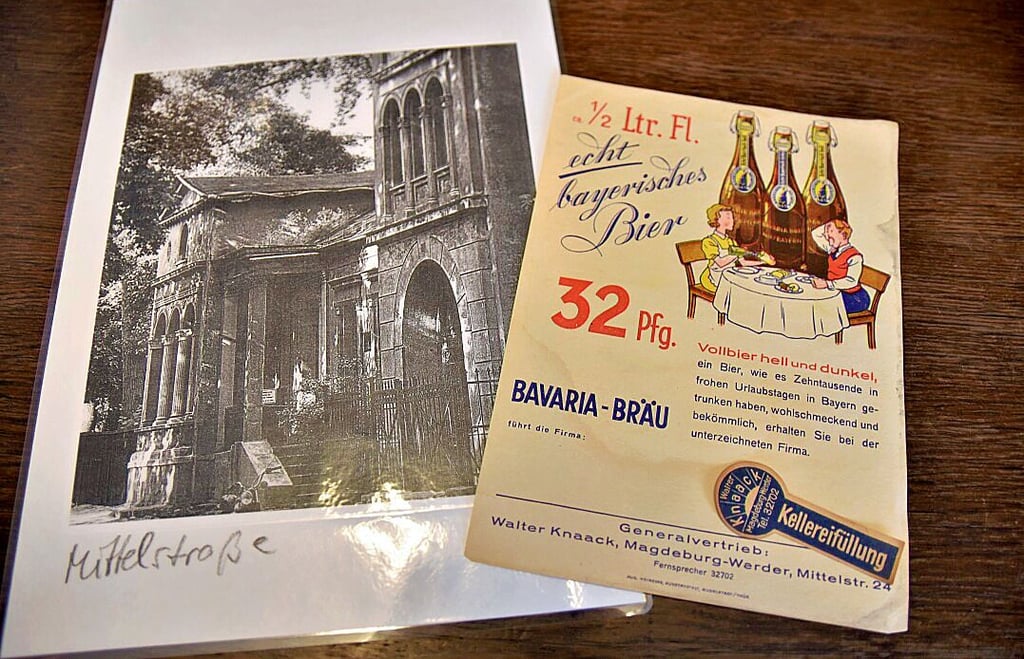 Mittelstraße
ca. 1/2 Ltr. Fl.
echt
bayerisches
Bier
32 Pfg.
Vollbier hell und dunkel,
ein Bier, wie es Zehntausende in
frohen Urlaubstagen in Bayern ge-
trunken haben, wohlschmeckend und
bekömmlich, erhalten Sie bei der
unterzeichneten Firma.
BAVARIA-BRÄU
führt die Firma:
Walter
Knaack
Magdeburg-Werder
Tel. 32702
Kellereifüllung
Generalvertrieb:
Walter Knaack, Magdeburg-Werder, Mittelstr. 24
Fernsprecher 32702